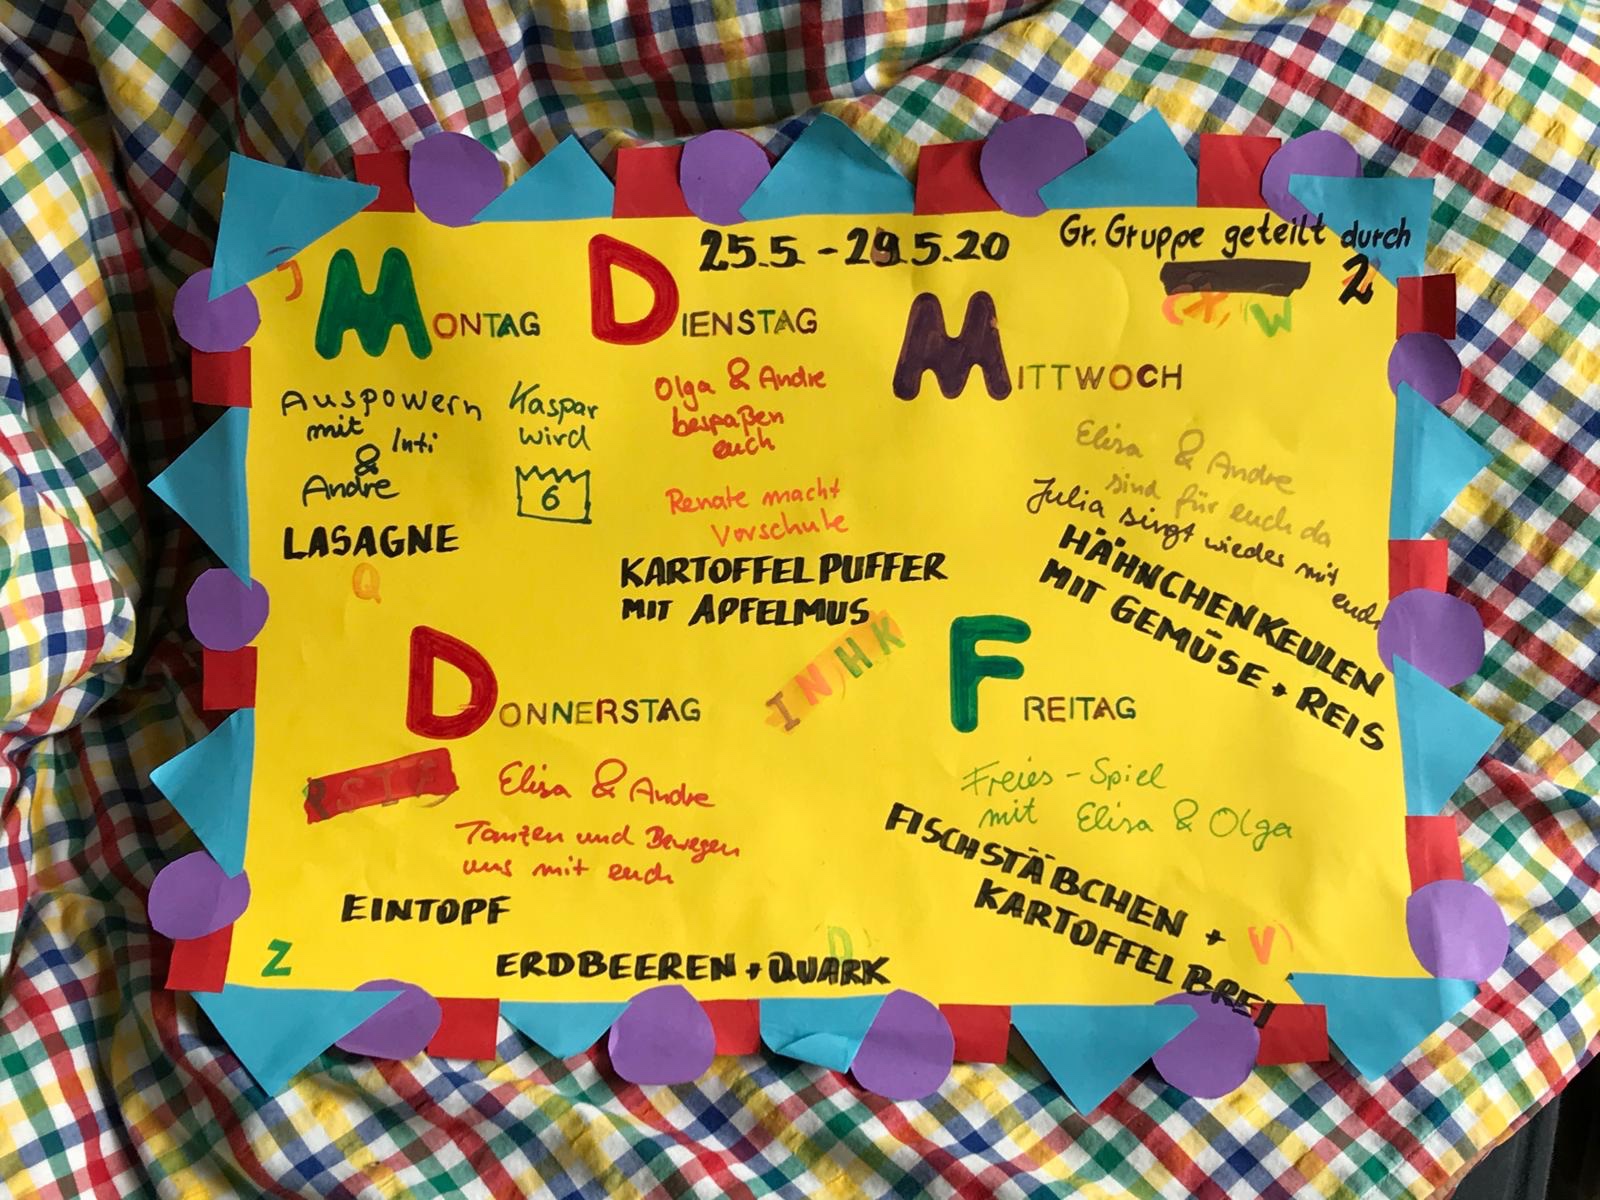 25.5. - 29.5.20
Gr. Gruppe geteilt durch
2
MONTAG
Auspowern
mit Inti
&
Andre
Kaspar
wird
6
LASAGNE
Q
DIENSTAG
Olga & Andre
bespaßen
euch
Renate macht
Vorschule
KARTOFFELPUFFER
MIT APFELMUS
MITTWOCH
W
Elisa & Andre
sind für euch da
Julia singt wieder mit
euch
HÄHNCHENKEULEN
MIT GEMÜSE + REIS
INHK
DONNERSTAG
Elisa & Andre
Tanzen und Bewegen
uns mit euch
EINTOPF
ERDBEEREN + QUARK
Z
FREITAG
Freies-Spiel
mit Elisa & Olga
FISCHSTÄBCHEN +
KARTOFFELBREI
V